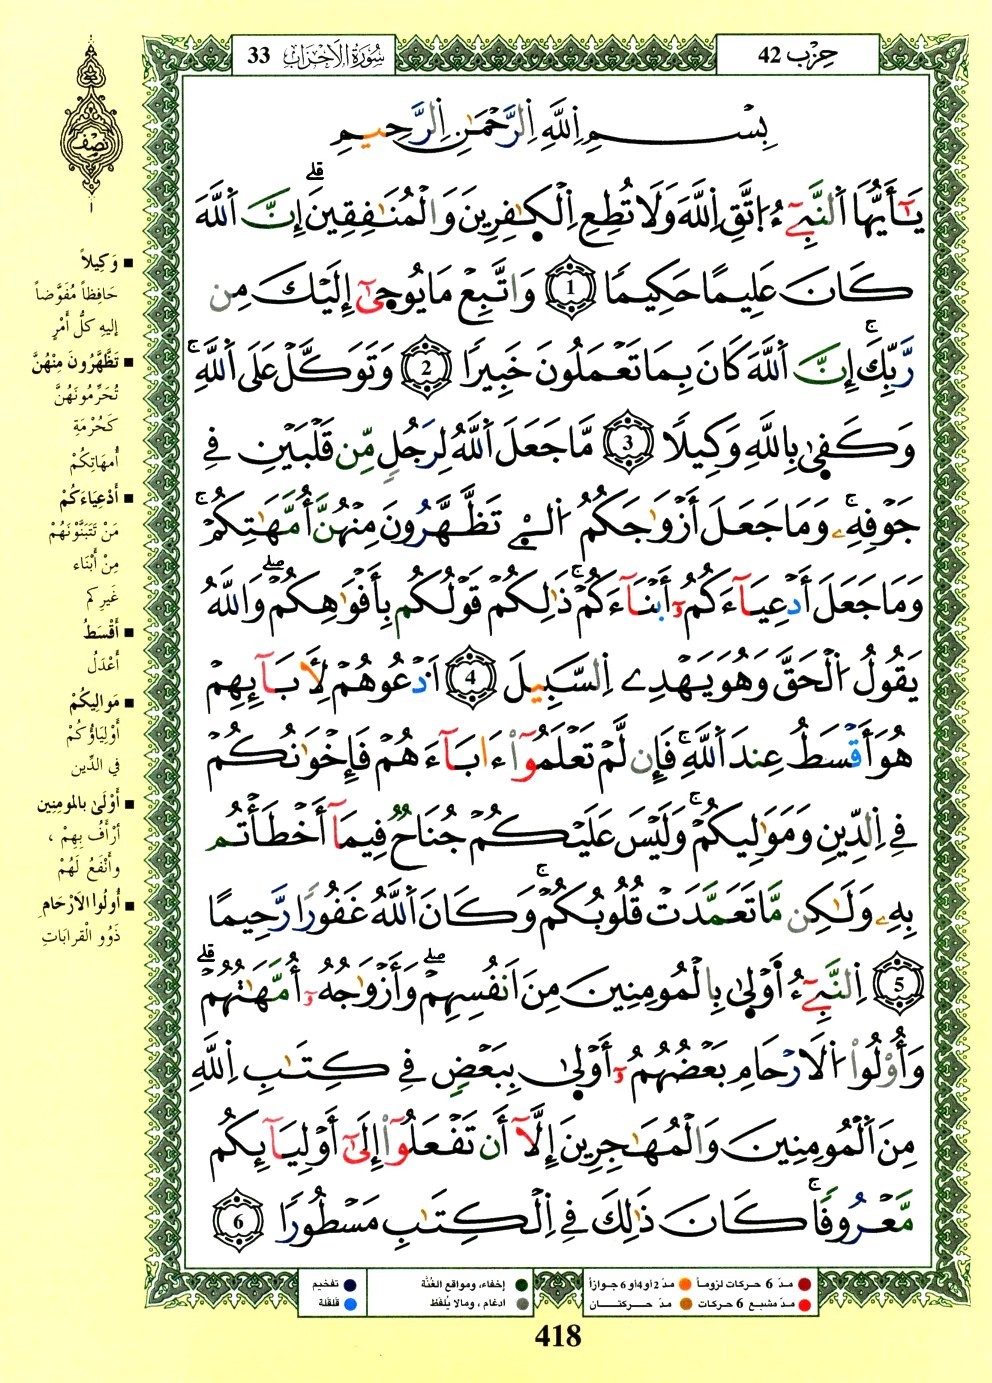 حِزْب 42
سُورَةُ الْأَحْزَابِ 33
بِسْمِ اِللَّهِ اِلرَّحْمَٰنِ اِلرَّحِيمِ
يَٰٓأَيُّهَا اَلنَّبِےٓءُ اِتَّقِ اِللَّهَ وَلَا تُطِعِ اِلْكٰ۪فِرِينَ وَالْمُنَٰفِقِينَۖ إِنَّ اَللَّهَ
كَانَ عَلِيمًا حَكِيمًا 1 وَاتَّبِعْ مَا يُوح۪يٰٓ إِلَيْكَ مِن
رَّبِّكَۚ إِنَّ اَللَّهَ كَانَ بِمَا تَعْمَلُونَ خَبِيرًا 2 وَتَوَكَّلْ عَلَي اَللَّهِۚ
وَكَف۪يٰ بِاللَّهِ وَكِيلًا 3 مَّا جَعَلَ اَللَّهُ لِرَجُلٍ مِّن قَلْبَيْنِ فِے
جَوْفِهِۦۚ وَمَا جَعَلَ أَزْوَٰجَكُمُ اُلَّٰٓـِٔے تَظَّهَّرُونَ مِنْهُنَّ أُمَّهَٰتِكُمْۚ
وَمَا جَعَلَ أَدْعِيَآءَكُمُۥٓ أَبْنَآءَكُمْۚ ذَٰلِكُمْ قَوْلُكُم بِأَفْوَٰهِكُمْۖ وَاللَّهُ
يَقُولُ اُلْحَقَّ وَهُوَ يَهْدِے اِلسَّبِيلَ 4 اَدْعُوهُمْ لِأٓبَآئِهِمْ
هُوَ أَقْسَطُ عِندَ اَللَّهِۚ فَإِن لَّمْ تَعْلَمُوٓاْ ءَابَآءَهُمْ فَإِخْوَٰنُكُمْ
فِے اِلدِّينِ وَمَوَٰلِيكُمْۚ وَلَيْسَ عَلَيْكُمْ جُنَاحٌ فِيمَآ أَخْطَأْتُم
بِهِۦ وَلَٰكِن مَّا تَعَمَّدَتْ قُلُوبُكُمْۚ وَكَانَ اَللَّهُ غَفُورًا رَّحِيمًا
5 اِلنَّبِےٓءُ أَوْل۪يٰ بِالْمُومِنِينَ مِنَ اَنفُسِهِمْۖ وَأَزْوَٰجُهُۥٓ أُمَّهَٰتُهُمْۖ
وَأُوْلُواْ اُلَارْحَامِ بَعْضُهُمُۥٓ أَوْل۪يٰ بِبَعْضٍ فِے كِتَٰبِ اِللَّهِ
مِنَ اَلْمُومِنِينَ وَالْمُهَٰجِرِينَ إِلَّآ أَن تَفْعَلُوٓاْ إِلَيٰٓ أَوْلِيَآئِكُم
مَّعْرُوفًاۚ كَانَ ذَٰلِكَ فِے اِلْكِتَٰبِ مَسْطُورًا 6
نِصْف
■ وَكِيلاً
حَافِظاً مُفَوَّضاً
إليهِ كلُّ أَمْرٍ
■ تَظَّهَّرُونَ مِنْهُنَّ
تُحَرِّمُونَهُنَّ
كَحُرْمَةِ
أُمهَاتِكُمْ
■ أَدْعِيَاءَكُمْ
مَنْ تَتَبَنَّوْنَهُمْ
مِنْ أَبْنَاء
غَيرِكم
■ أَقْسَطُ
أَعْدَلُ
■ مَوَالِيكُمْ
أَوْلِيَاؤُكُمْ
في الدِّين
■ أَوْلَىٰ بالمومِنِين
أرْأَفُ بِهِمْ ،
وأَنْفَعُ لَهُمْ
■ أُولُوا الاَرْحَامِ
ذَوُو الْقرابَاتِ
مدّ 6 حركات لزوماً مدّ 2 أو 4 أو 6 جوازاً إخفاء، ومواقع الغُنَّة تفخيم
مدّ مشبع 6 حركات مدّ حركتان ادغام ، ومالا يُلفَظ قلقلة
418